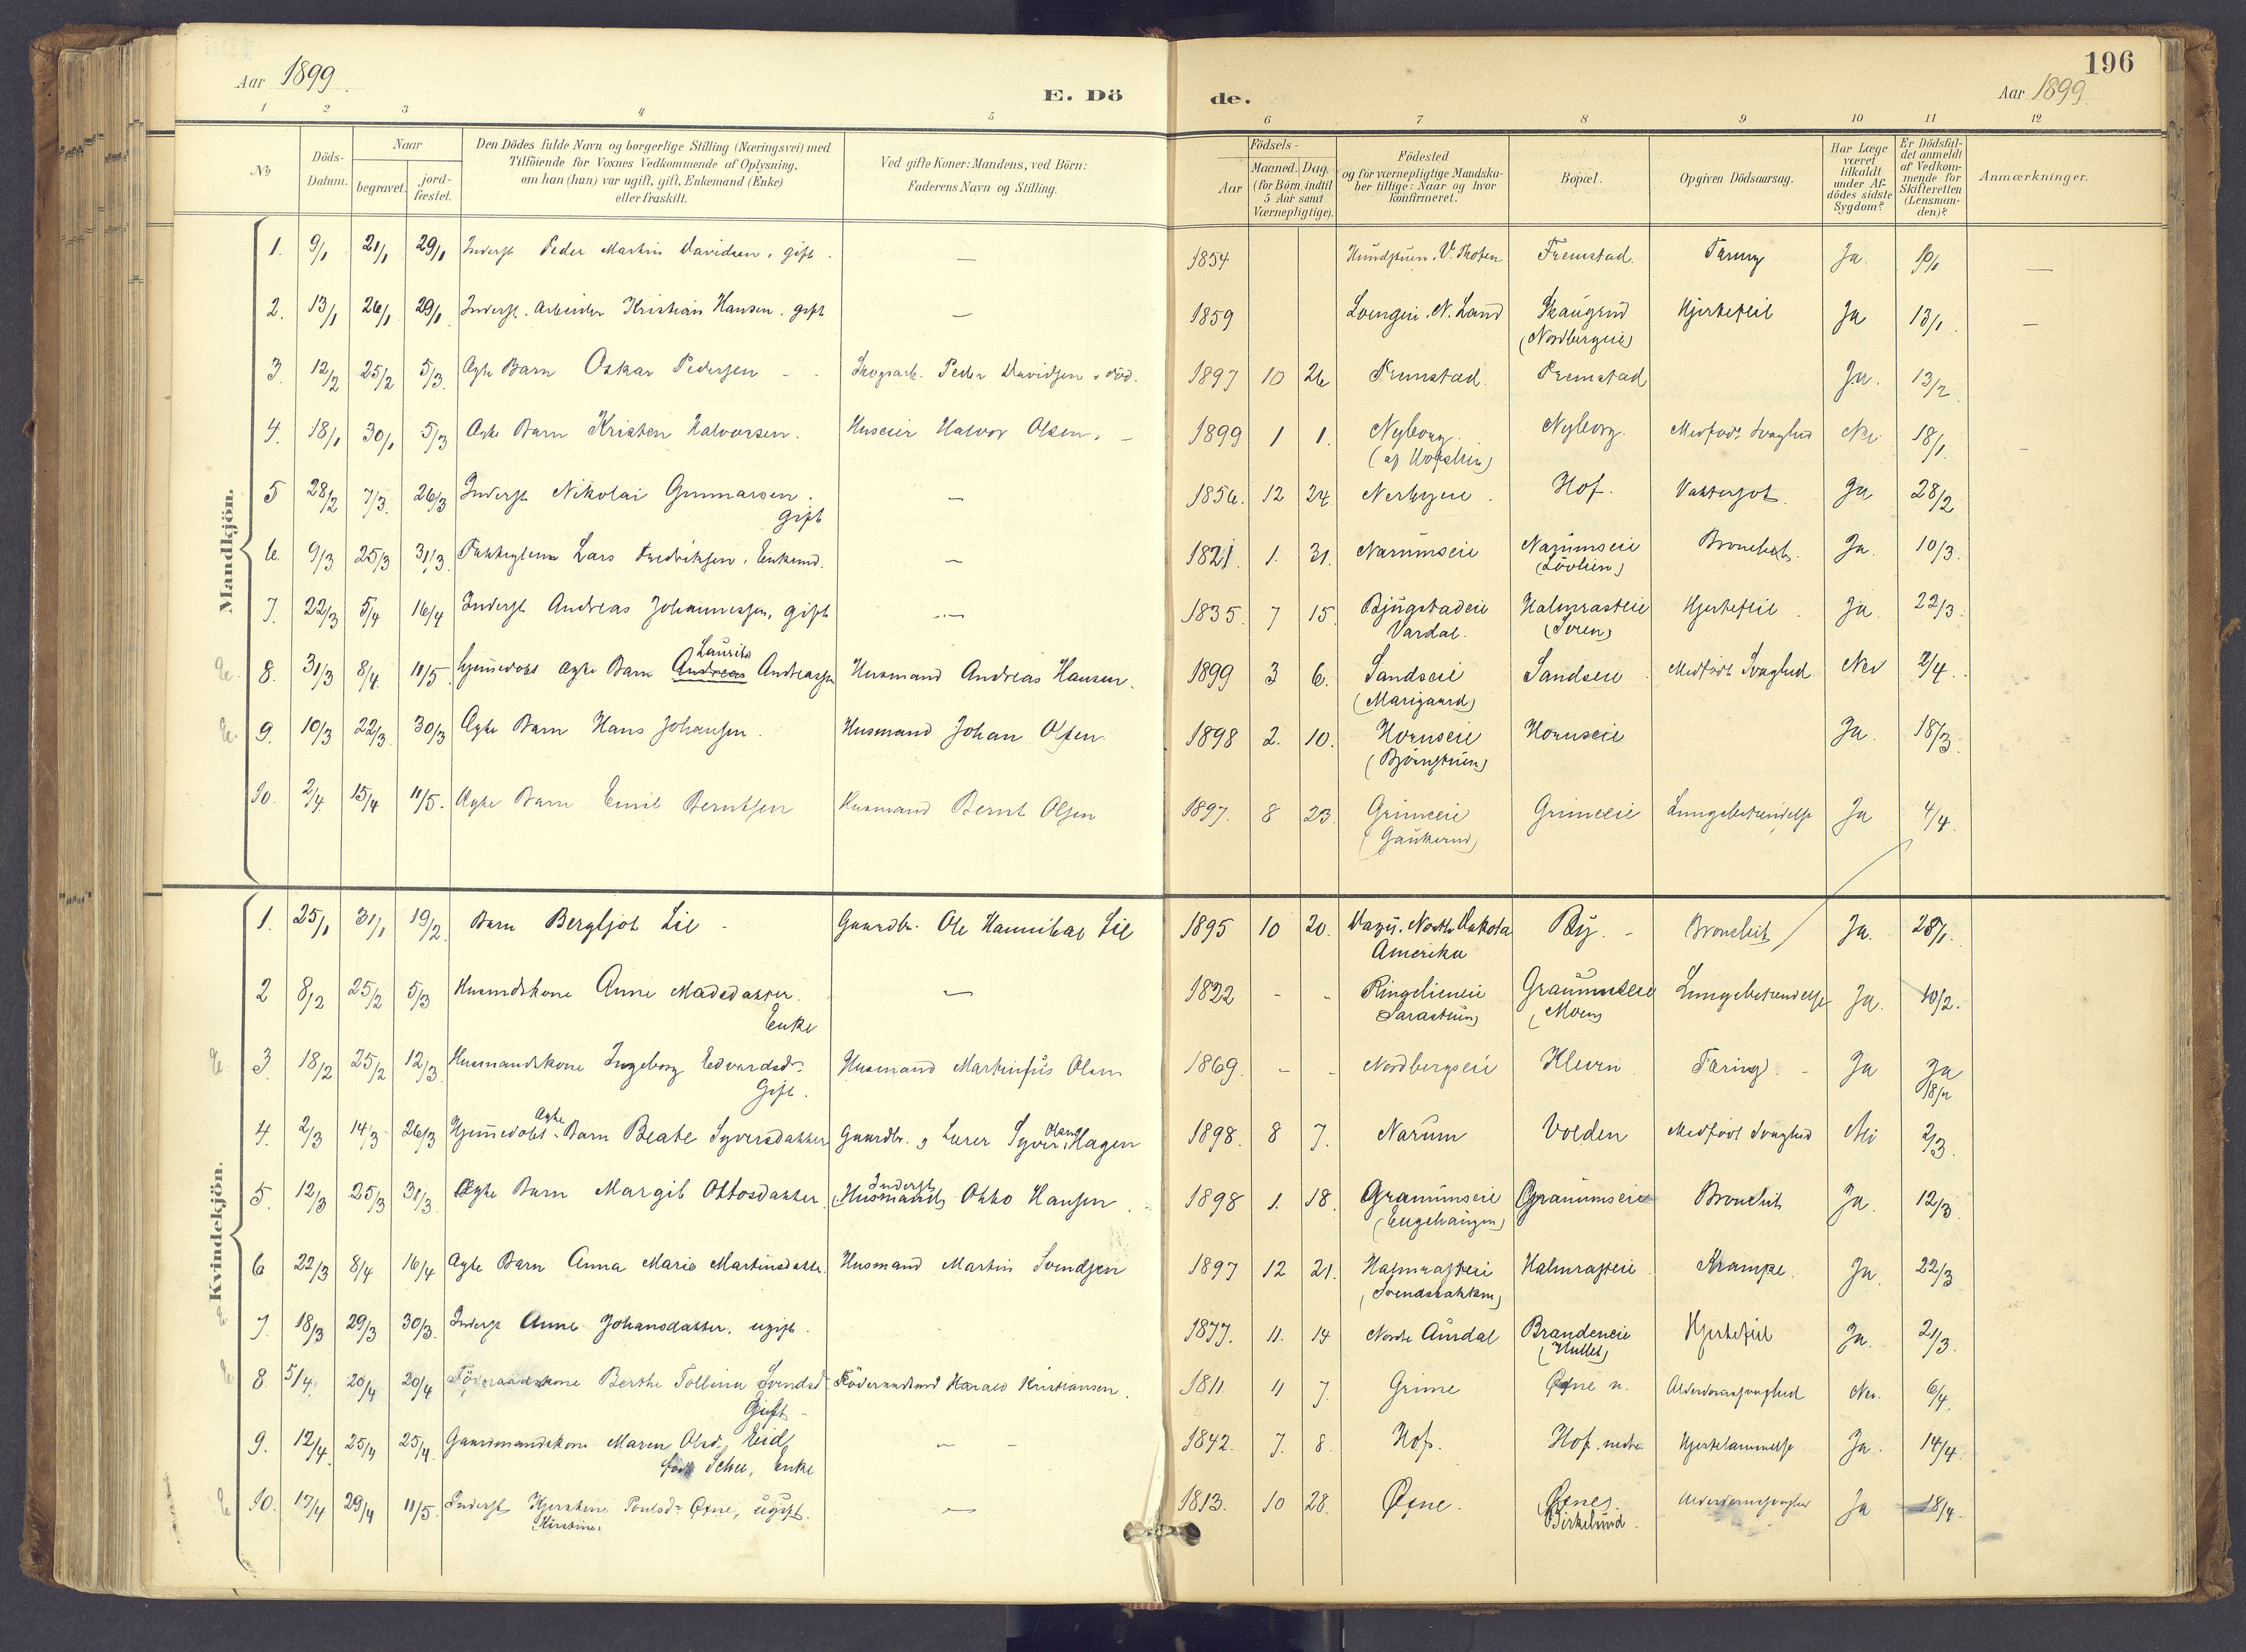 Aar 1899
E. Döde.
196
Aar 1899
1 2 3 4 5 6 7 8 9 10 11 12
No
Döds-Datum.
Naar
begravet.
jord-fæstet.
Den Dödes fulde Navn og borgerlige Stilling (Næringsvei) med
Tilföiende for Voxnes Vedkommende af Oplysning,
om han (hun) var ugift, gift, Enkemand (Enke)
eller fraskilt.
Ved gifte Koner: Mandens, ved Börn:
Faderens Navn og Stilling.
Födsels-
Aar
Maaned. Dag.
(for Börn indtil
5 Aar samt
Værnepligtige).
Födested
og for værnepligtige Mandska-
ber tillige: Naar og hvor
konfirmeret.
Bopæl.
Opgiven Dödsaarsag.
Har Læge
været
tilkaldt
under Af-
dödes sidste
Sygdom?
Er Dödsfal-
det anmeldt
af Vedkom-
mende for
Skifteretten
(Lensman-
den)?
Anmærkninger.
Mandkjön.
1. 9/1 21/1 29/1 Inderst Peder Martin Davidsen, gift. — 1854 V. Thoten Fremstad. Tæring Ja 10/1 —
2. 13/1 26/1 29/1 Inderst. Arbeider Kristian Hansen. gift — 1859 N. Land Skaugrud Hjertefeil Ja 13/1. —
(Nordbergeie)
3. 12/2 25/2 5/3. Ægte Barn Oskar Pedersen Skogsarb. Peder Davidsen, död. 1897 10 26 Fremstad. Fremstad Ja. 13/2.
4. 18/1 30/1 5/3 Ægte Barn Kristen Halvorsen. Huseier Halvor Olsen. 1899 1 1. Nyborg. Nyborg. Medfödt Svaghed Nei 18/1.
5 28/2 7/3. 26/3 Inderst Nikolai Gunnarsen. — 1856. 12 24 Hof. Ja 28/2
gift
6. 9/3 25/3 31/3. Lars Fredriksen, Enkemd. — 1821. 1. 31. Narumseie Narumseie Bronchit. Ja. 10/3.
(Lövlien)
7. 22/3 5/4 16/4 Inderst Andreas Johannessen, gift — 1835. 7 15. Bjugstadeie Halmrasteie Hjertefeil Ja. 22/3.
Vardal.
Laurits
8. 31/3 8/4. 11/5. Hjemmedöbt ægte Barn Andreas Andreassen Husmand Andreas Hansen. 1899 3 6. Sandseie Sandseie Medfödt Svaghed Nei 2/4.
(Marigaard)
9. 10/3 22/3. 30/3 Ægte Barn Hans Johansen. Husmand Johan Olsen. 1898 2. 10. Hornseie Hornseie Ja. 18/3.
10. 2/4 15/4 11/5. Ægte Barn Emil Berntsen Husmand Bernt Olsen 1897. 8 23. Grimeeie Grimeeie Lungebetændelse Ja 4/4.
(Gaukerud)
Kvindekjön.
1. 25/1 31/1 19/2. Barn Bergljot Lie Gaardbr. Ole Hannibal Lie 1895 10 20. North Dakota By. Bronchit Ja. 28/1.
Amerika
2 8/2 25/2 5/3 Husmdskone Anne Madsdatter. — 1822 - - Ringelieneie Graumseie Lungebetændelse Ja. 10/2.
Enke (Moen)
3. 18/2 25/2 12/3 Husmandskone Ingeborg Edvardsdr. Husmand Martinius Olsen 1869. - - Nordbergseie Kleven Tæring. Ja Ja
Gift. 18/2
Ægte
4. 2/3 14/3 26/3 Hjemmedöbt Barn Beate Syversdatter Gaardbr. og Lærer Syver Hagen 1898. 8 7. Narum Volden Medfödt Svaghed Nei 2/3.
Inderst
5. 12/3 25/3 31/3. Ægte Barn Margit Ottosdatter. (Husmand) Otto Hansen. 1898 1. 18. Graumseie Graumseie Bronchit Ja. 12/3.
(Engehaugen)
6 22/3 8/4 16/4 Ægte Barn Anna Marie Martinsdatter. Husmand Martin Svendsen 1897 12 21. Halmrasteie Halmrasteie Krampe. Ja. 22/3
7. 18/3 29/3 30/3. Inderst Anne Johansdatter. ugift. 1877. 11. 14 Nordre Aurdal Brandeneie Hjertefeil Ja. 21/3.
8 5/4. 20/4 20/4 Föderaadskone Berthe Tolline Svendsd. Föderaadsmd Harald Kristiansen. 1811. 11 7. Grime Øxne n. Alderdomssvaghed Nei. 6/4.
Gift
9. 12/4. 25/4 25/4. Gaardmandskone Maren Olsd. Eid, — 1842. 7. 8. Hof. Hof, nedre Hjertelammelse Ja. 14/4.
född , Enke
10. 17/4 29/4 11/5. Inderst Kjerstine Poulsdr. Øxne, ugift. — 1813. 10 28. Øxne. Øxne, Alderdomssvaghed Ja 18/4.
(Kirstine) Birkelund.